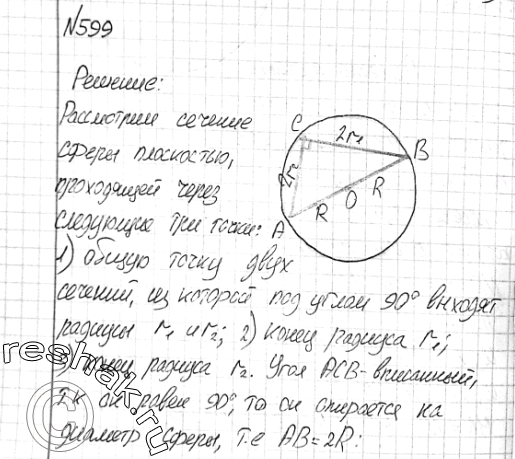 №599
Решение:
Рассмотрим сечение
сферы плоскостью,
проходящей через
следующие три точки:
1) общую точку двух
сечений, из которой под углом 90° выходят
радиусы r₁ и r₂; 2) конец радиуса r₁;
3) конец радиуса r₂. Угол ACB-вписанный,
т.к он равен 90°, то он опирается на
диаметр сферы, т.е AB=2R:
C
2r₁
B
2r₂
R
O
R
A
reshak.ru
©